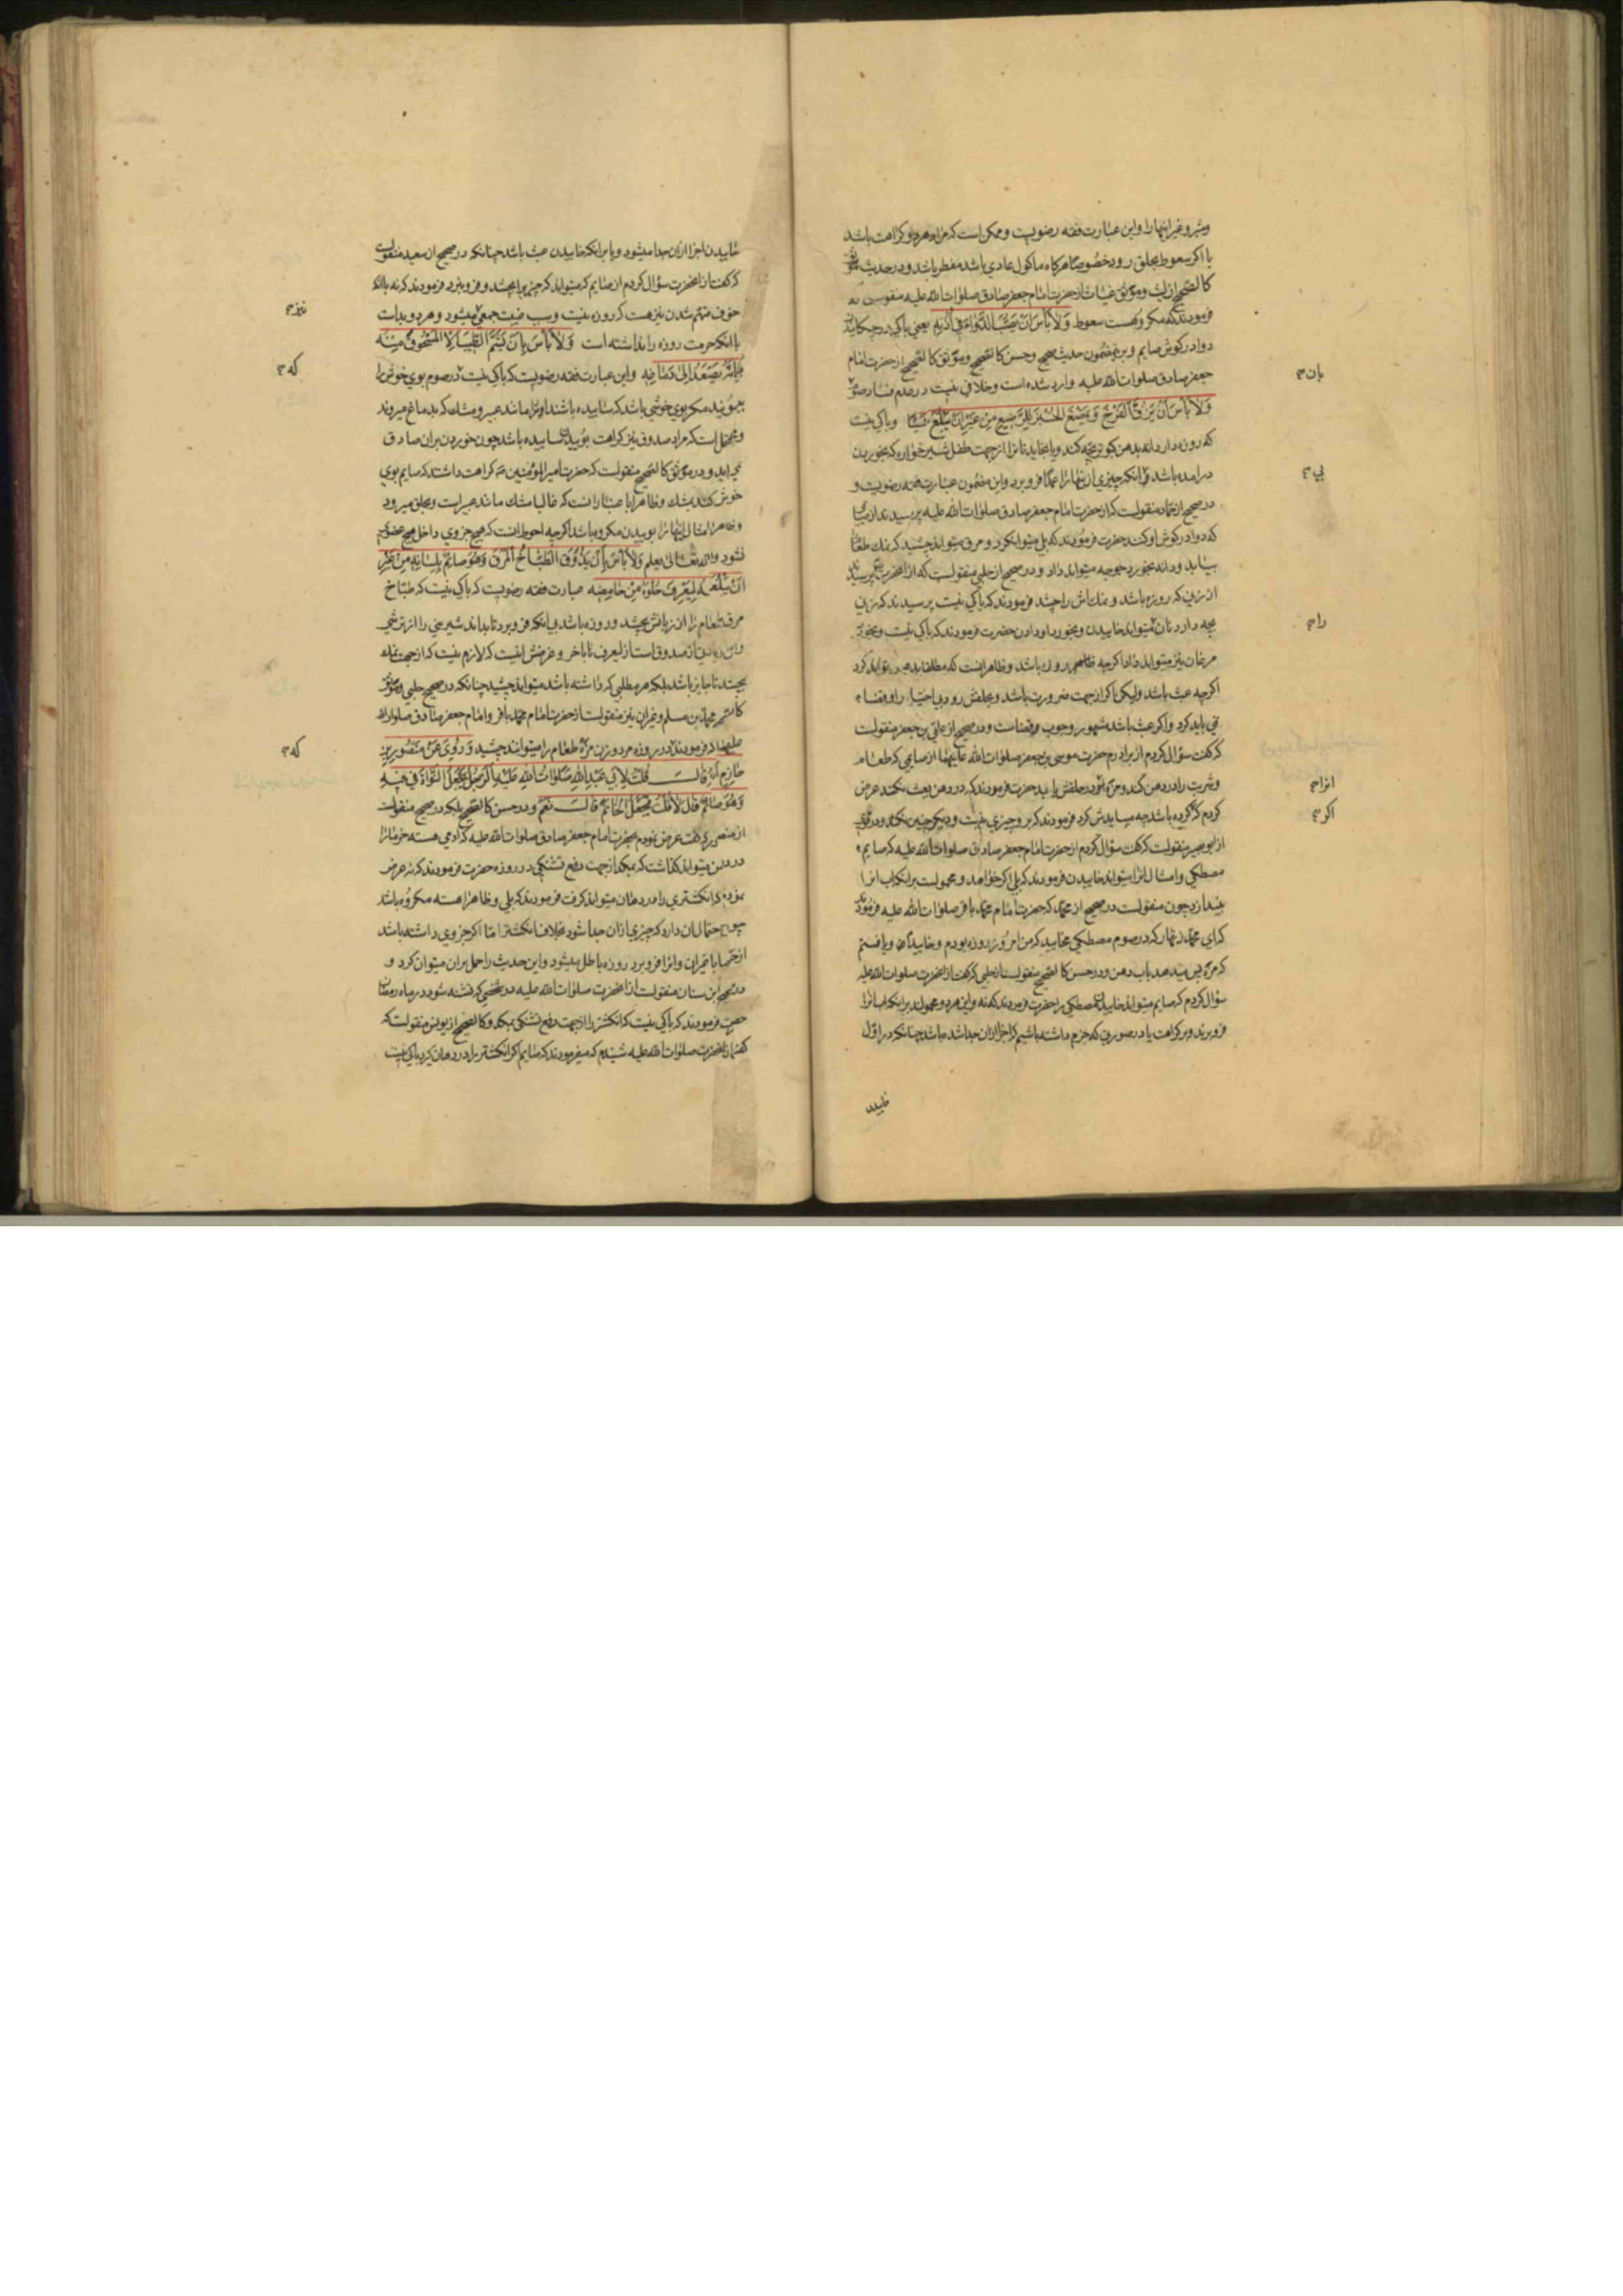 وغیر اینها را و این عبارت فقه رضویست و ممکن است که مراد هر دو کراهت باشد
با اگر سعوط بحلق رود خصوصا هرگاه ماکول عادی باشد مفطر باشد و در حدیث موثق
کالصحیح از لیث و موثق غیاث از حضرت امام جعفر صادق صلوات الله علیه منقولست که
فرمودند که مکروهست سعوط وَلاٰ بَأْسَ اَنْ یَصُبَّ الدَّوٰاءَ فی اُذُنِهِ یعنی باکی در چکانیدن
دوا در کوش صایم و برین مضمون حدیث صحیح و حسن کالصحیح و موثق کالصحیح از حضرت امام
جعفر صادق صلوات الله علیه وارد شده است و خلافی نیست در عدم فساد صوم
وَلاٰ بَأْسَ اَنْ یَزُقَّ الْفَرْخَ وَیَمْضَغَ الْخُبْزَ لِلرَّضِیعِ مِنْ غَیْرِ اَنْ یَبْلَعَ شَیْئًا و باکی نیست
که روزه دار دانه بدهن کبوتر بچه کند و یا بخاید نانرا از جهت طفل شیرخواره که بخوردن
درامده باشد بی انکه چیزی از اینها را عمدا فرو برد و این مضمون عبارت فقه رضویست و
در صحیح از حماد منقولست که از حضرت امام جعفر صادق صلوات الله علیه پرسیدند از صایمی
که دوا در کوش او کنند حضرت فرمودند که بلی میتواند کرد و مرق میتواند چشید که نمک طعام
بیابد و دانه بخورد جوجه میتواند داد و در صحیح از حلبی منقولست که از انحضرت پرسیدند
از زنی که روزه باشد و نمک اش را چشد فرمودند که باکی نیست پرسیدند که زنی
بچه دارد نان میتواند خاییدن و بخورد او دادن حضرت فرمودند که باکی نیست و بخورد
مرغان نیز میتواند داد اگرچه روزه باشد و ظاهر انست که مطلقا میتواند کرد
اگرچه عبث باشد ولیکن اگر از جهت ضرورت باشد و بحلقش رود بی اختیار او قضاء
نمی باید کرد و اگر عبث باشد مشهور وجوب قضاست و در صحیح از علی بن جعفر منقولست
که گفت سؤال کردم از برادرم حضرت موسی بن جعفر صلوات الله علیهما از صایمی که طعام
و شربت را در دهن کند و مزه در حلقش یابد حضرت فرمودند که در دهن نکند عرض
کردم که اگر کرده باشد چه میبایدش کرد فرمودند که برو چیزی نیست و دیگر چنین نکند و در قوی
از ابوبصیر منقولست که گفت سؤال کردم از حضرت امام جعفر صادق صلوات الله علیه که صایم
مصطکی و امثال انرا میتواند خاییدن فرمودند که بلی اگر خواهد و محمولست بر انکه اب انرا
بیندازد چون منقولست در صحیح از محمد که حضرت امام محمد باقر صلوات الله علیه فرمودند
که ای محمد زنهار که در صوم مصطکی مخایید که من امروز روزه بودم و خاییدم و یافتم
که مزه پس میدهد باب دهن و در حسن کالصحیح منقولست از حلبی که گفت از انحضرت صلوات الله علیه
سؤال کردم که صایم میتواند خاییدن مصطکی را حضرت فرمودند که نه و این هر دو محمولند بر انکه اب انرا
فرو برند و بر کراهت یا در صورتی که جزم داشته باشیم که اجزا از ان جدا شده باشد چنانکه در اول
خاییدن
بان
بی
را
انرا
اکر
خاییدن اجزا از ان جدا میشود و یا بر انکه خاییدن عبث باشد چنانکه در صحیح از سعید منقولست
که گفت از انحضرت سؤال کردم از صایم که میتواند که چیزی را بچشد و فرو نبرد فرمودند که نه با انکه
خوف متهم شدن نیز هست که روزه نیست و سبب غیبت جمعی میشود و هر دو بداست
با انکه حرمت روزه را نداشته است وَلاٰ بَأْسَ بِاَنْ یَشُمَّ الطِّیبَ اِلَّا الْمَسْحُوقَ مِنْهُ
فَاِنَّهُ یَصْعَدُ اِلیٰ دِمٰاغِهِ و این عبارت فقه رضویست که باکی نیست در صوم بوی خوش را
ببویند مگر بوی خوشی باشد که ساییده باشند انرا مانند عبیر و مشک که بدماغ میروند
و محتمل است که مراد صدوق نیز کراهت بوییدن ساییده باشد چون خوردن بران صادق
نمی اید و در موثق کالصحیح منقولست که حضرت امیر المؤمنین کراهت داشتند که صایم بوی
خوش کند بمشک و ظاهرا با عنبارا نست که غالبا مشک مانند عبیر است و بحلق میرود
و ظاهرا امثال اینها را بوییدن مکروه باشد اگرچه احوط انست که هیچ جزوی داخل هیچ عضوی
نشود والله تعالی یعلم وَلاٰ بَأْسَ بِاَنْ یَذُوقَ الطَّبّٰاخُ الْمَرَقَ وَهُوَ صٰائِمٌ بِلِسٰانِهِ مِنْ غَیْرِ
اَنْ یَبْلَعَهُ لِیَعْرِفَ حُلْوَهُ مِنْ حٰامِضِهِ عبارت فقه رضویست که باکی نیست که طبّاخ
مرق طعام را از زبانش بچشد و روزه باشد بی انکه فرو برد تا بداند شیرینی را از ترشی
و این زیادتی از صدوق است از لیعرف تا باخر و غرضش اینست که لازم نیست که از جهت نمک
بچشد تا جایز باشد بلکه هر مطلبی که داشته باشد میتواند چشید چنانکه در صحیح حلبی و موثق
کالصحیح محمد بن مسلم و غیران نیز منقولست از حضرت امام محمد باقر و امام جعفر صادق صلوات الله
علیهما که فرمودند در روزه مرد و زن مزه طعام را میتوانند چشید وَرُوِیَ عَنْ مَنْصُورِ بْنِ
حٰازِمٍ اَنَّهُ قٰالَ قُلْتُ لِاَبِی عَبْدِ اللهِ صَلَوٰاتُ اللهِ عَلَیْهِ الرَّجُلُ یَجْعَلُ النَّوٰاةَ فِی فِیهِ
وَهُوَ صٰائِمٌ قٰالَ لاٰ قُلْتُ فَیَجْعَلُ الْخٰاتَمَ قٰالَ نَعَمْ و در حسن کالصحیح بلکه در صحیح منقولست
از منصور که گفت عرض نمودم بحضرت امام جعفر صادق صلوات الله علیه که ادمی هسته خرما را
در دهن میتواند گذاشت که بمکد از جهت دفع تشنگی در روزه حضرت فرمودند که نه عرض
نمودم که انکشتری را در دهان میتواند گرفت فرمودند که بلی و ظاهرا هسته مکروه باشد
چون احتمال ان دارد که چیزی از ان جدا شود بخلاف انکشتر اما اگر جزوی داشته باشد
از خرما یا غیران و انرا فرو برد روزه باطل میشود و این حدیث را حمل بران میتوان کرد و
در صحیح ابن سنان منقولست از انحضرت صلوات الله علیه در شخصی که تشنه شود در ماه رمضان
حضرت فرمودند که باکی نیست که انکشتر را از جهت دفع تشنگی بمکد و کالصحیح از یونس منقولست که
گفت از انحضرت صلوات الله علیه شنیدم که میفرمودند که صایم اگر انکشتر را در دهان گیرد باکی نیست
نیز
که
که